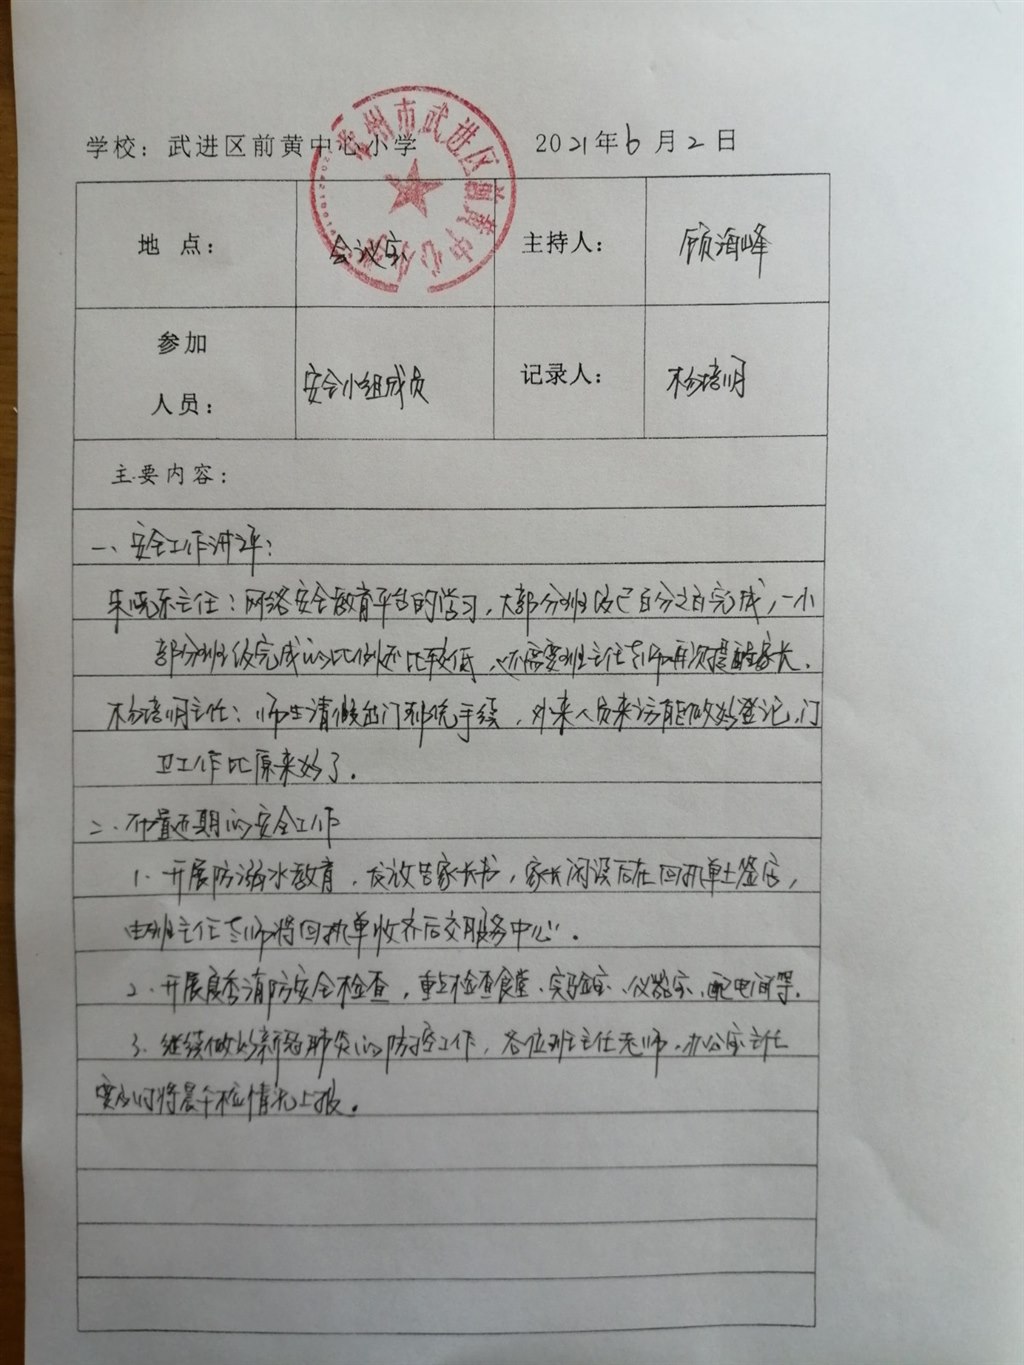 学校：武进区前黄中心小学 2021年6月2日
常州市武进区前黄中心小学
地 点： 会议室 主持人： 顾海峰
参加
人员： 安全小组成员 记录人： 杨培明
主要内容：
一、安全工作讲评：
朱晓东主任：网络安全教育平台的学习，大部分班级已百分之百完成，一小
部分班级完成的比例还比较低，还需要班主任老师再次提醒家长。
杨培明主任：师生请假出门有手续，外来人员来访能做好登记，门
卫工作比原来好了。
二、布置近期的安全工作
1、开展防溺水教育，发放告家长书，家长阅读后在回执单上签字，
由班主任老师将回执单收齐后交服务中心。
2、开展夏季消防安全检查，重点检查食堂、实验室、仪器室、配电间等。
3、继续做好新冠肺炎的防控工作，各位班主任老师、办公室主任
要及时将晨午检情况上报。